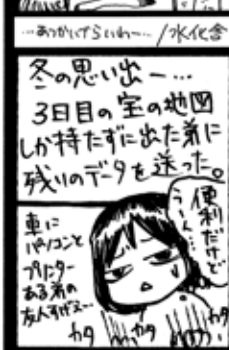 …あつかいづらいわー…/水化舎
冬の思い出ー…
3日目の宝の地図
しか持たずに出た弟に
残りのデータを送った。
便利だけど
うーん…
車に
パソコンと
プリンター
ある弟の
友人すげえ…
カタ
カタ
カタ